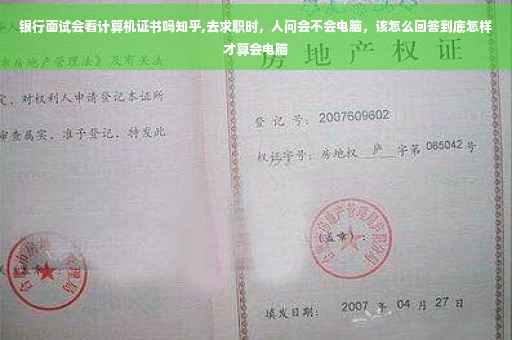 银行面试会看计算机证书吗知乎,去求职时，人问会不会电脑，该怎么回答到底怎样
才算会电脑
房地产权证
市房地产管理法》及有关法
定，对权利人申请登记本证所
审查属实，准予登记，特发此
登记号：2007609602
权证字号：房地权 庐 字第 085042 号
(盖章)：
填发日期： 2007 年 04 月 27 日